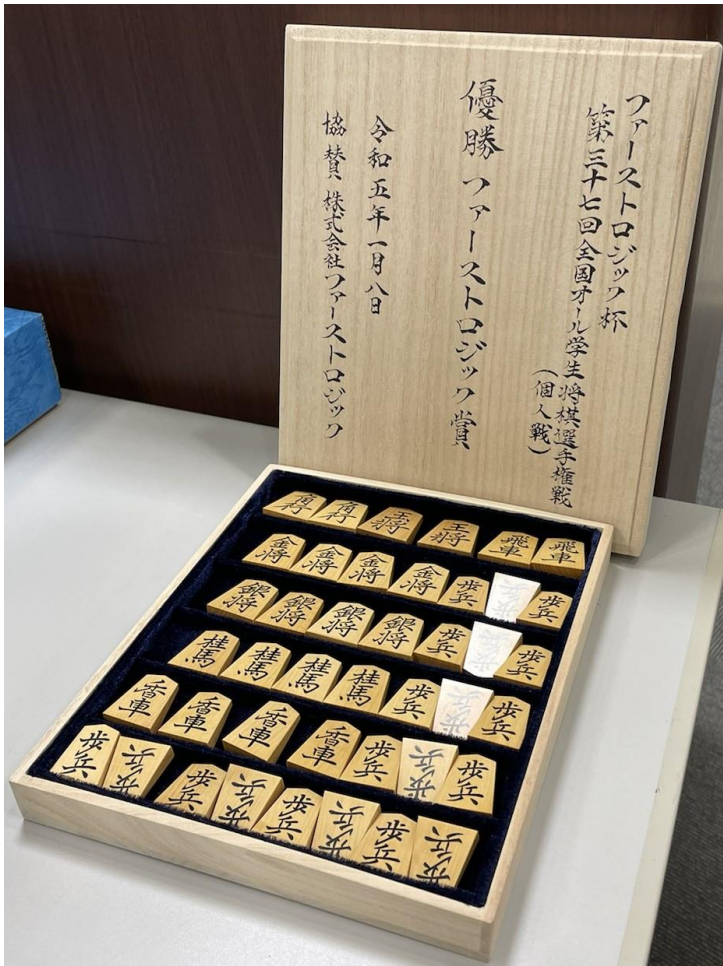 ファーストロジック杯
第三十七回全国オール学生将棋選手権戦
(個人戦)
優勝 ファーストロジック賞
令和五年一月八日
協賛 株式会社ファーストロジック
角行 角行 玉将 王将 飛車 飛車
金将 金将 金将 金将 歩兵 歩兵 歩兵
銀将 銀将 銀将 銀将 歩兵 歩兵 歩兵
桂馬 桂馬 桂馬 桂馬 歩兵 歩兵 歩兵
香車 香車 香車 香車 歩兵 歩兵 歩兵
歩兵 歩兵 歩兵 歩兵 歩兵 歩兵 歩兵 歩兵